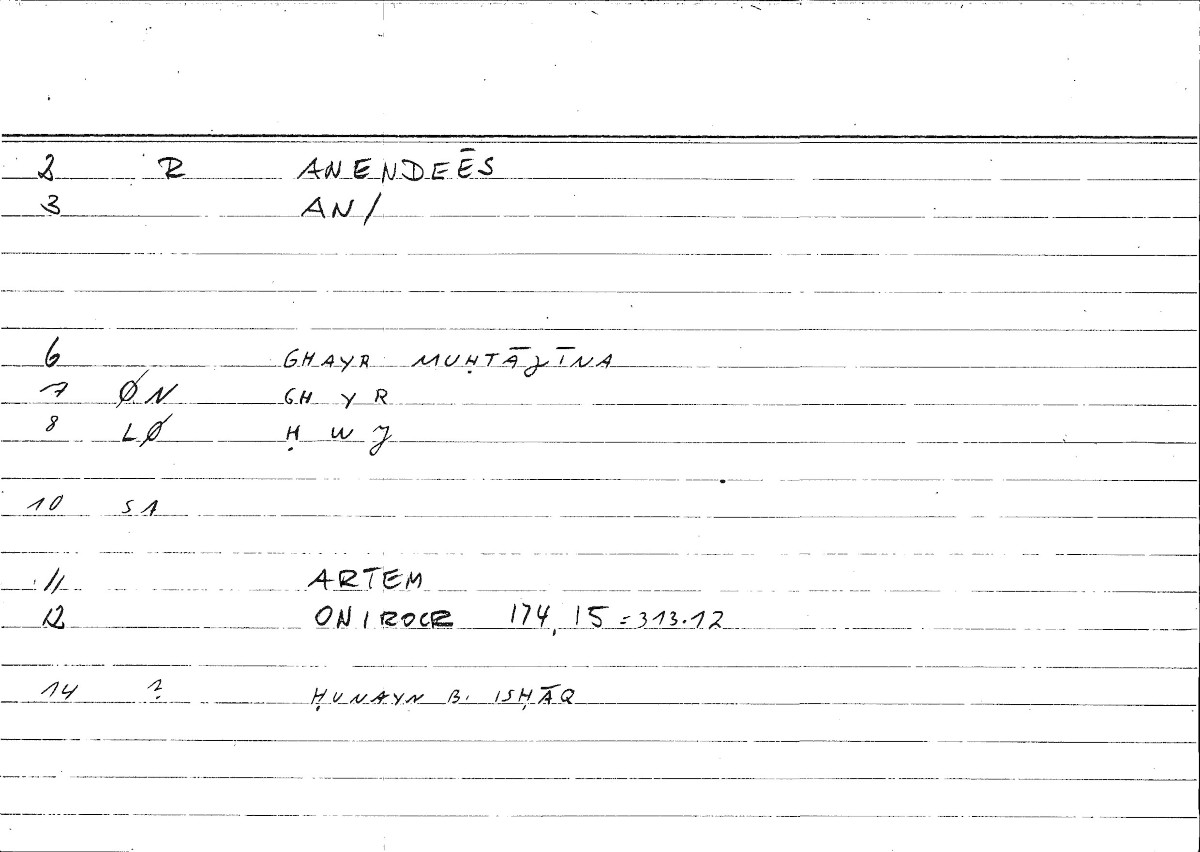 2 R ANENDEĒS
3 AN/
6 GHAYR MUḤTĀJĪNA
7 ØN GH Y R
8 LØ Ḥ W J
10 S1
11 ARTEM
12 ONIROCR 174,15 = 313.12
14 ? ḤUNAYN B. ISḤĀQ